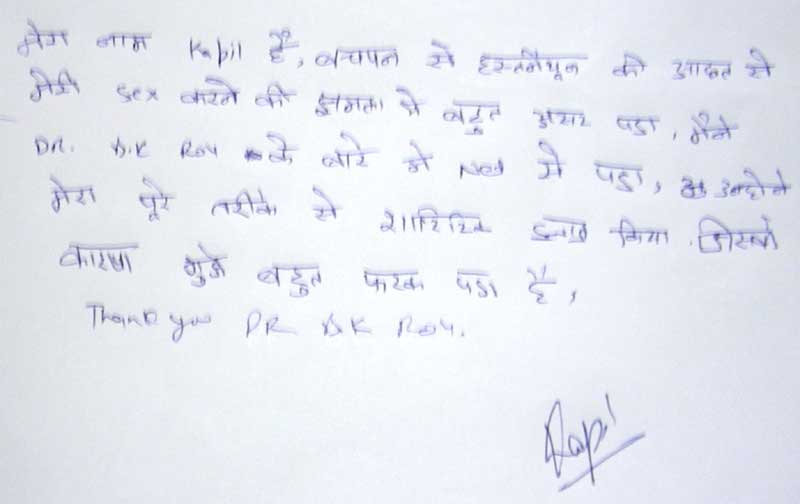 मेरा नाम Kapil है, बचपन से हस्तमैथून की आदत से
मेरी sex करने की क्षमता पे बहुत असर पडा, मैंने
DR. D.K Roy के बारे मे Net मे पडा, उन्होने
मेरा पूरे तरीके से शारिरिक इलाज किया जिसके
कारण मुझे बहुत फरक पडा है,
Thank you DR DK Roy.
Kapil